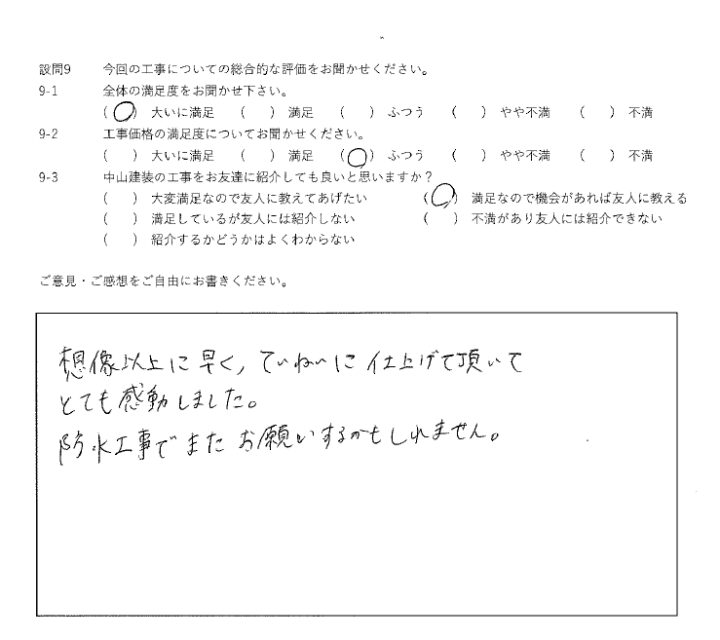 設問9 今回の工事についての総合的な評価をお聞かせください。
9-1 全体の満足度をお聞かせ下さい。
(○) 大いに満足 ( ) 満足 ( ) ふつう ( ) やや不満 ( ) 不満
9-2 工事価格の満足度についてお聞かせください。
( ) 大いに満足 ( ) 満足 (○) ふつう ( ) やや不満 ( ) 不満
9-3 中山建装の工事をお友達に紹介しても良いと思いますか？
( ) 大変満足なので友人に教えてあげたい (○) 満足なので機会があれば友人に教える
( ) 満足しているが友人には紹介しない ( ) 不満があり友人には紹介できない
( ) 紹介するかどうかはよくわからない
ご意見・ご感想をご自由にお書きください。
想像以上に早く，ていねいに仕上げて頂いて
とても感動しました。
防水工事でまたお願いするかもしれません。